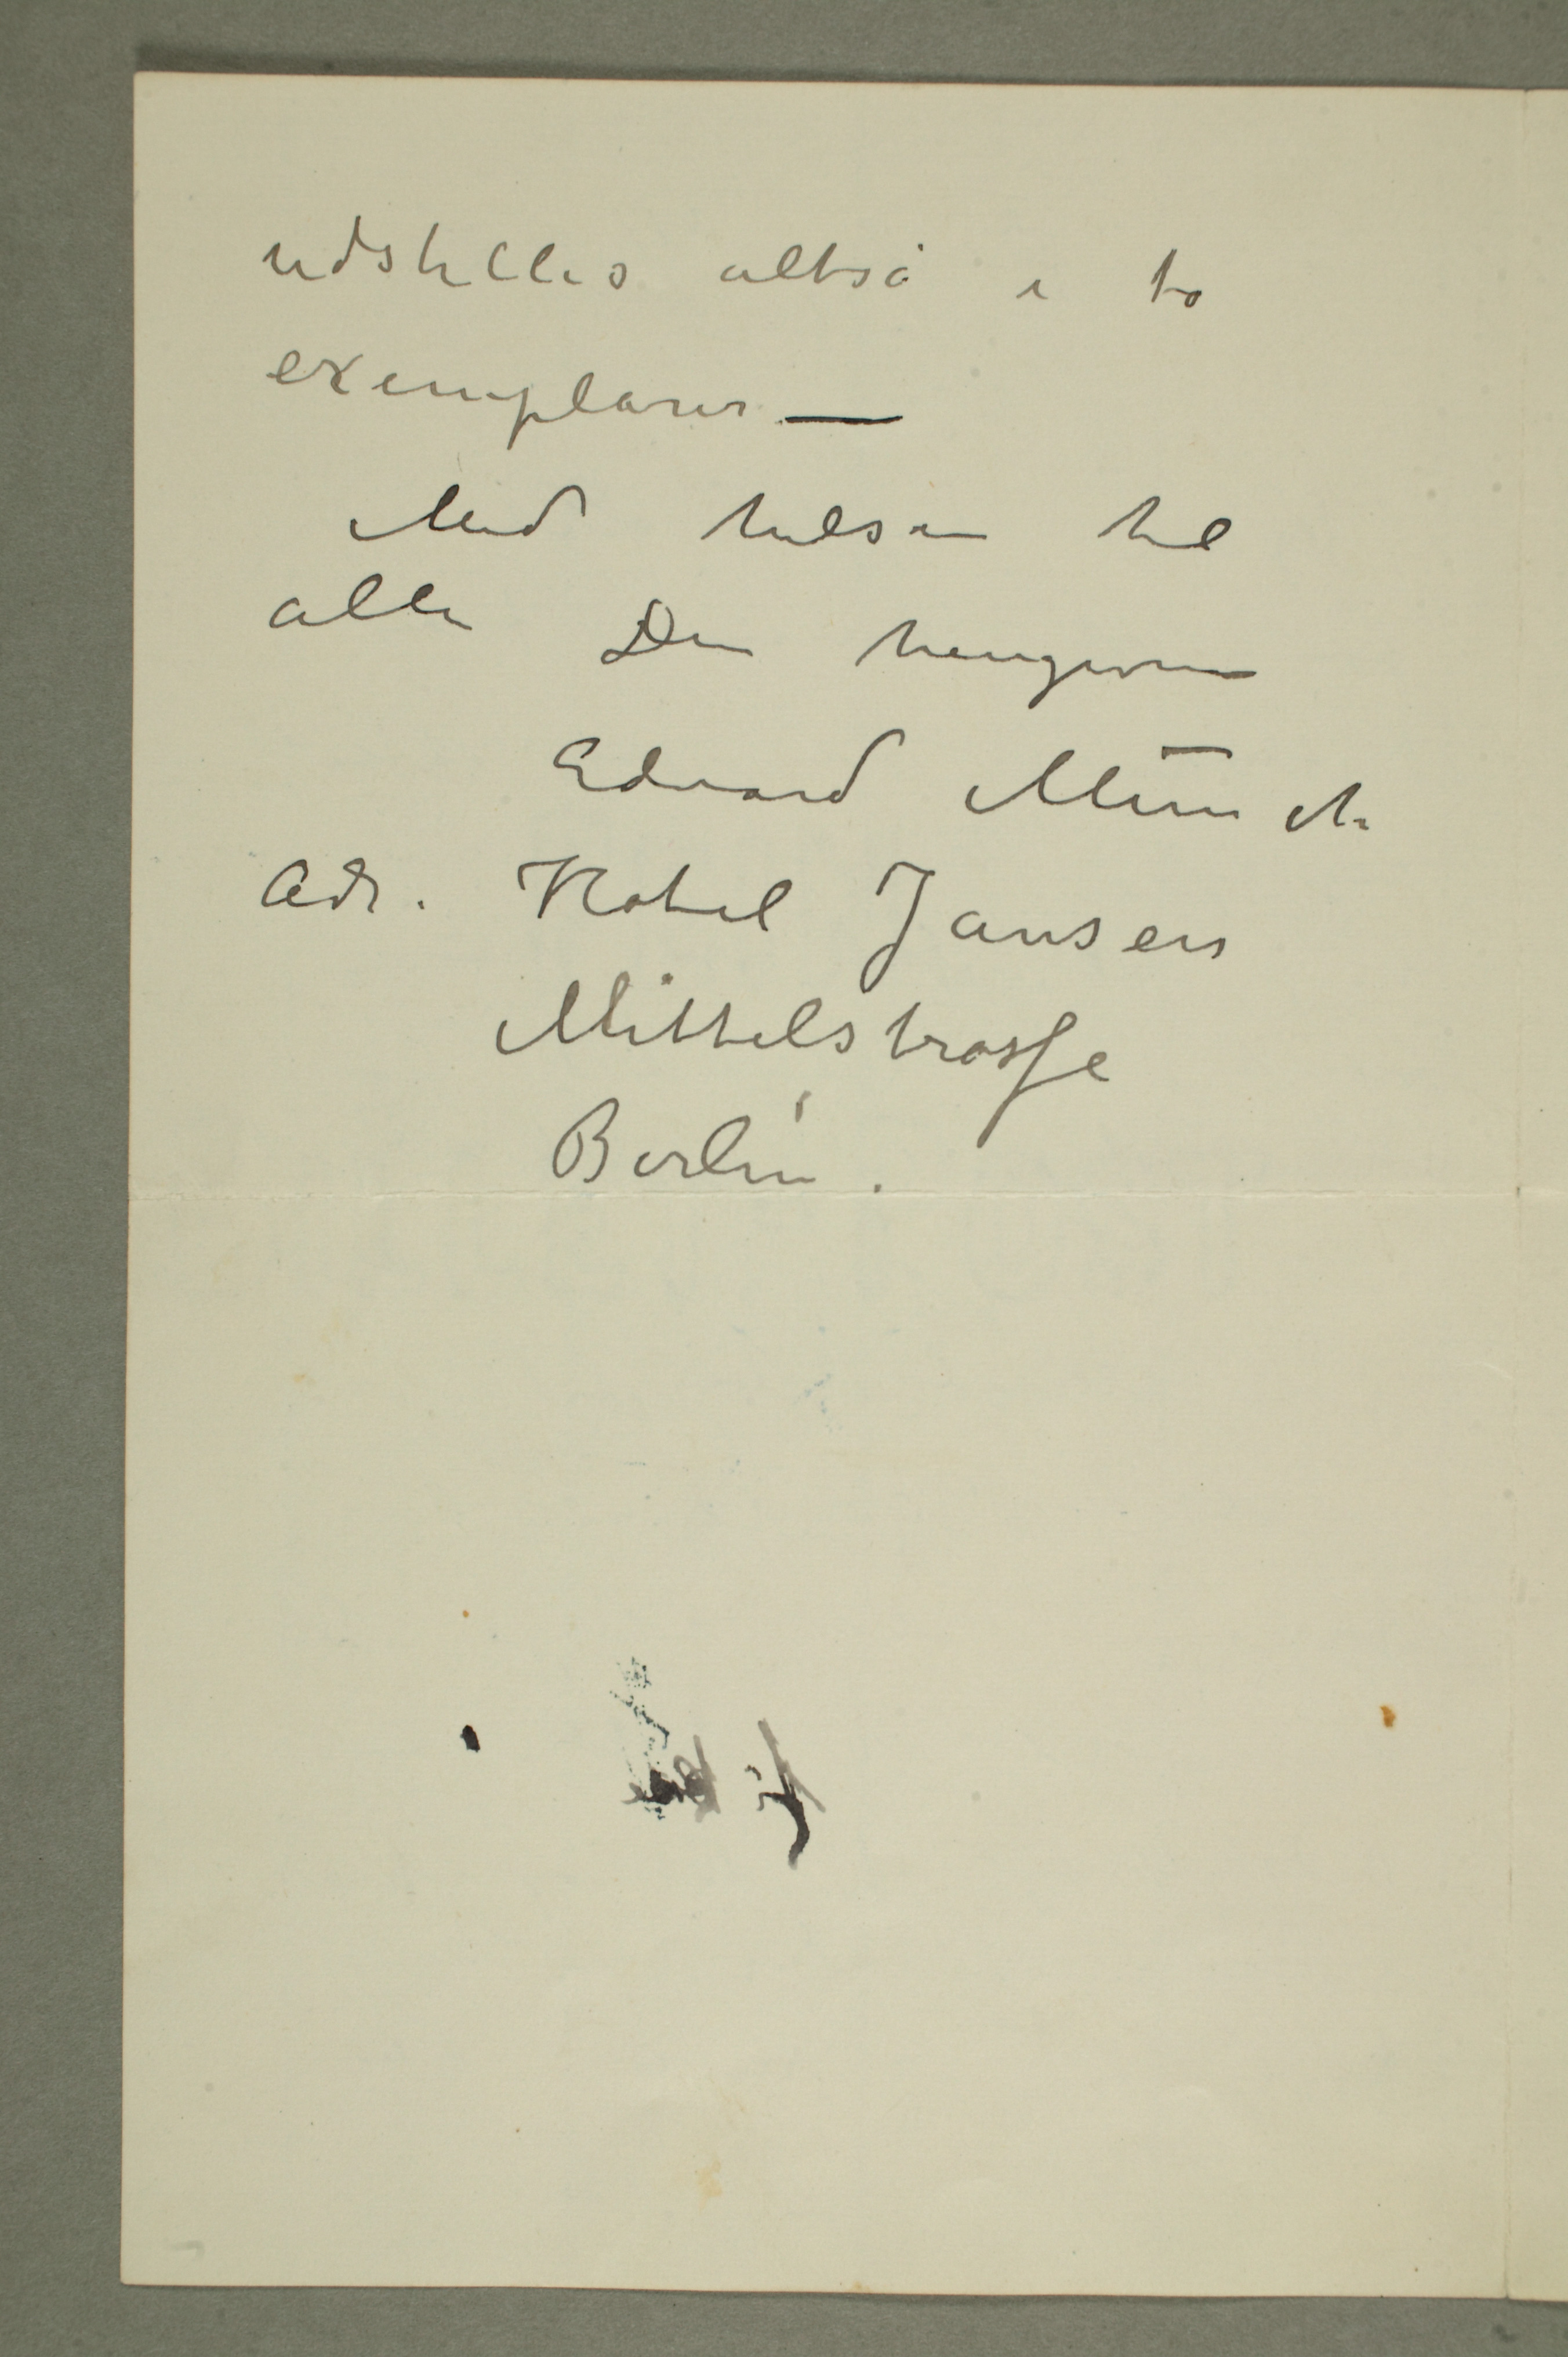 udstilles altså i to
exemplarer —
Med hilsen til
alle Din hengivne
Edvard Munch
Adr. Hotel Jansen
Mittelstrasse
Berlin.